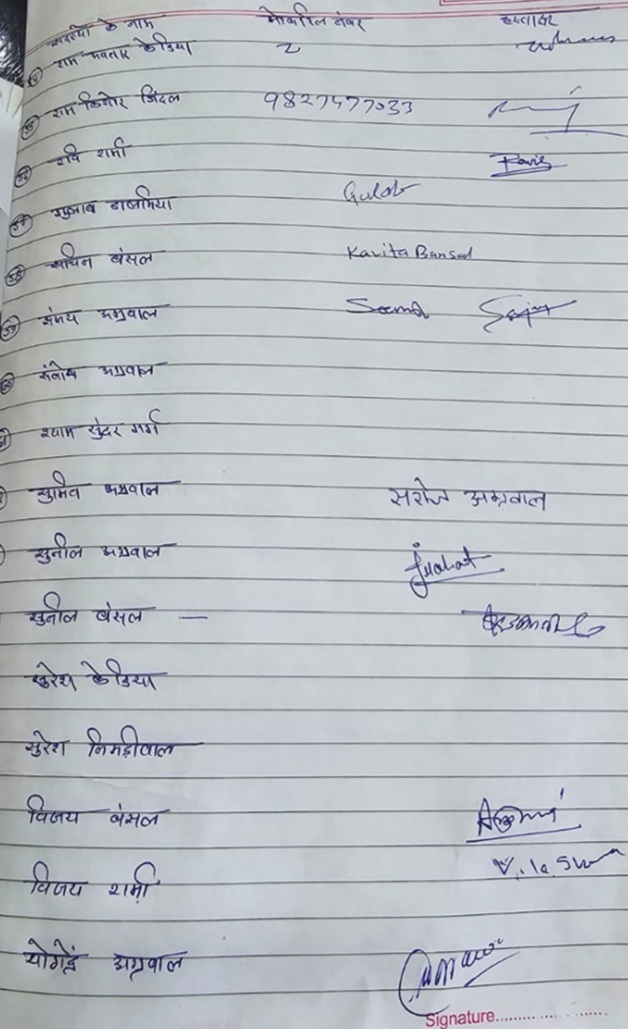 सदस्यो के नाम मोबाईल नंबर हस्ताक्षर
राम अवतार केडिया 2
राम किशोर जिंदल 9827477033
रवि शर्मा Ravi
गुलाब डालमिया Gulab
सचिन बंसल Kavita Bansal
संजय अग्रवाल Seema Sanjay
संतोष अग्रवाल
श्याम सुंदर गर्ग
सुमित अग्रवाल सरोज अग्रवाल
सुनील अग्रवाल
सुनील बंसल —
सुरेश केडिया
सुरेश निमड़ीवाल
विजय बंसल
विजय शर्मा
योगेंद्र अग्रवाल
Signature